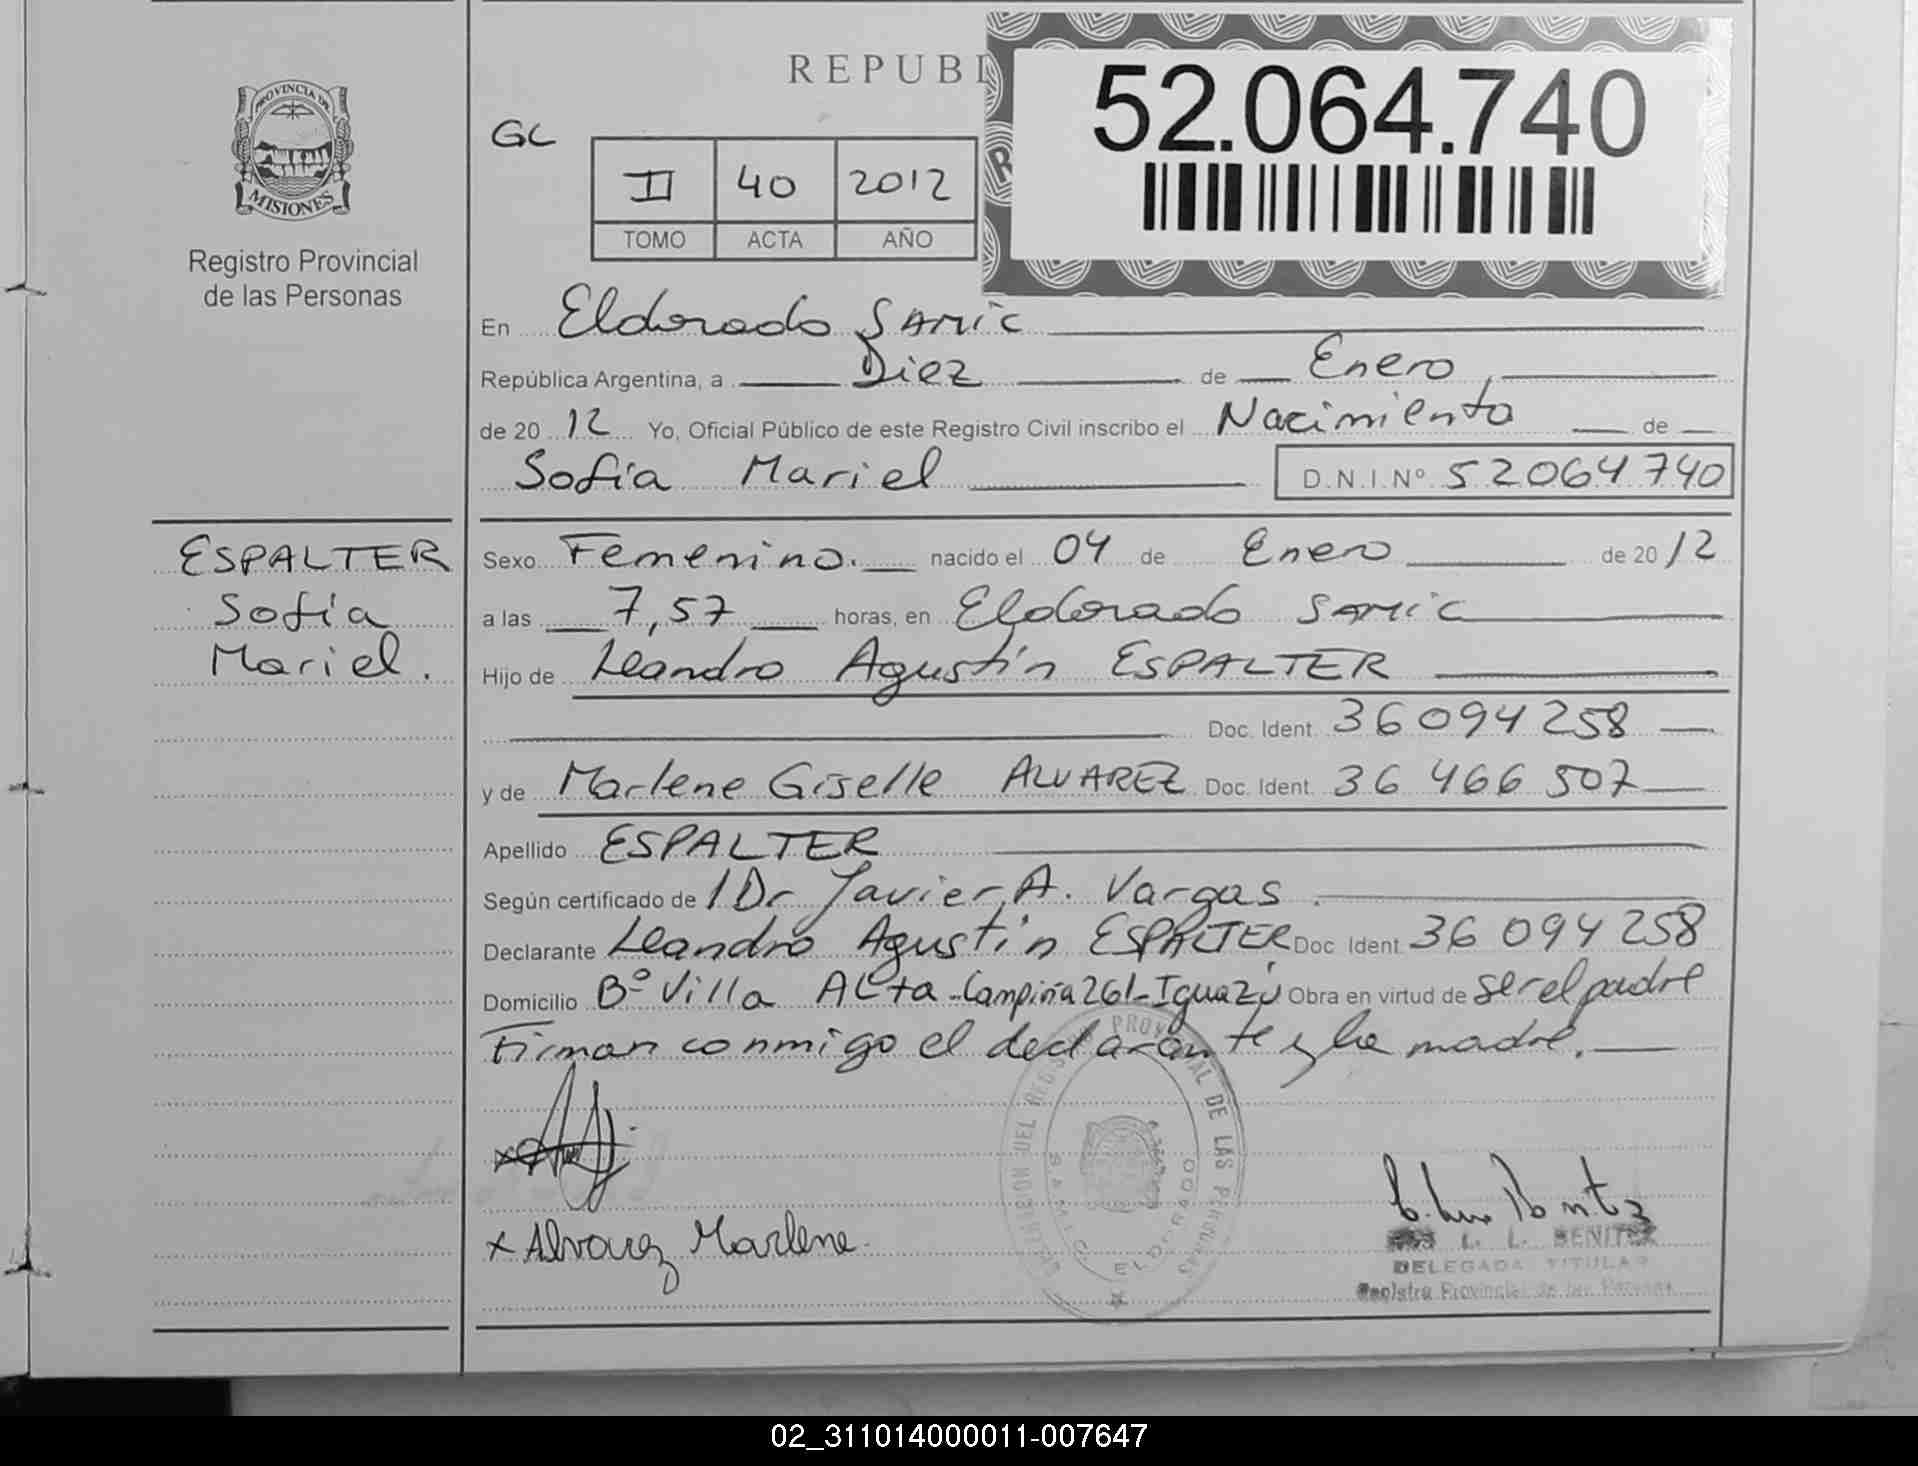 PROVINCIA DE
MISIONES
Registro Provincial
de las Personas
REPUBL
52.064.740
GC
II 40 2012
TOMO ACTA AÑO
En Eldorado SAMIC
República Argentina, a Diez de Enero
de 20 12 Yo, Oficial Público de este Registro Civil inscribo el Nacimiento de
Sofía Mariel D.N.I.Nº 52064740
ESPALTER
Sofía
Mariel.
Sexo Femenino. nacido el 04 de Enero de 20 12
a las 7,57 horas, en Eldorado SAMIC
Hijo de Leandro Agustín ESPALTER
Doc. Ident. 36094258
y de Marlene Giselle ALVAREZ Doc. Ident. 36 466 507
Apellido ESPALTER
Según certificado de l Dr Javier A. Vargas
Declarante Leandro Agustín ESPALTER Doc. Ident. 36 094 258
Domicilio Bº Villa Alta - Campiña 261 - Iguazú Obra en virtud de ser el padre
Firman conmigo el declarante y la madre.
x Alvarez Marlene.
PROVINCIAL DE LAS PERSONAS
SAMIC ELDORADO
L. L. BENITEZ
DELEGADA TITULAR
Registro Provincial de las Personas
02_311014000011-007647